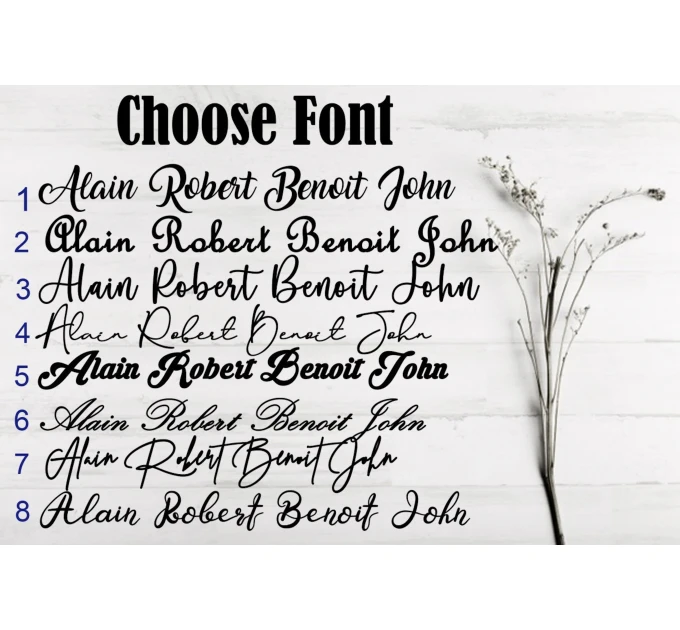 Choose Font
1 Alain Robert Benoit John
2 Alain Robert Benoit John
3 Alain Robert Benoit John
4 Alain Robert Benoit John
5 Alain Robert Benoit John
6 Alain Robert Benoit John
7 Alain Robert Benoit John
8 Alain Robert Benoit John